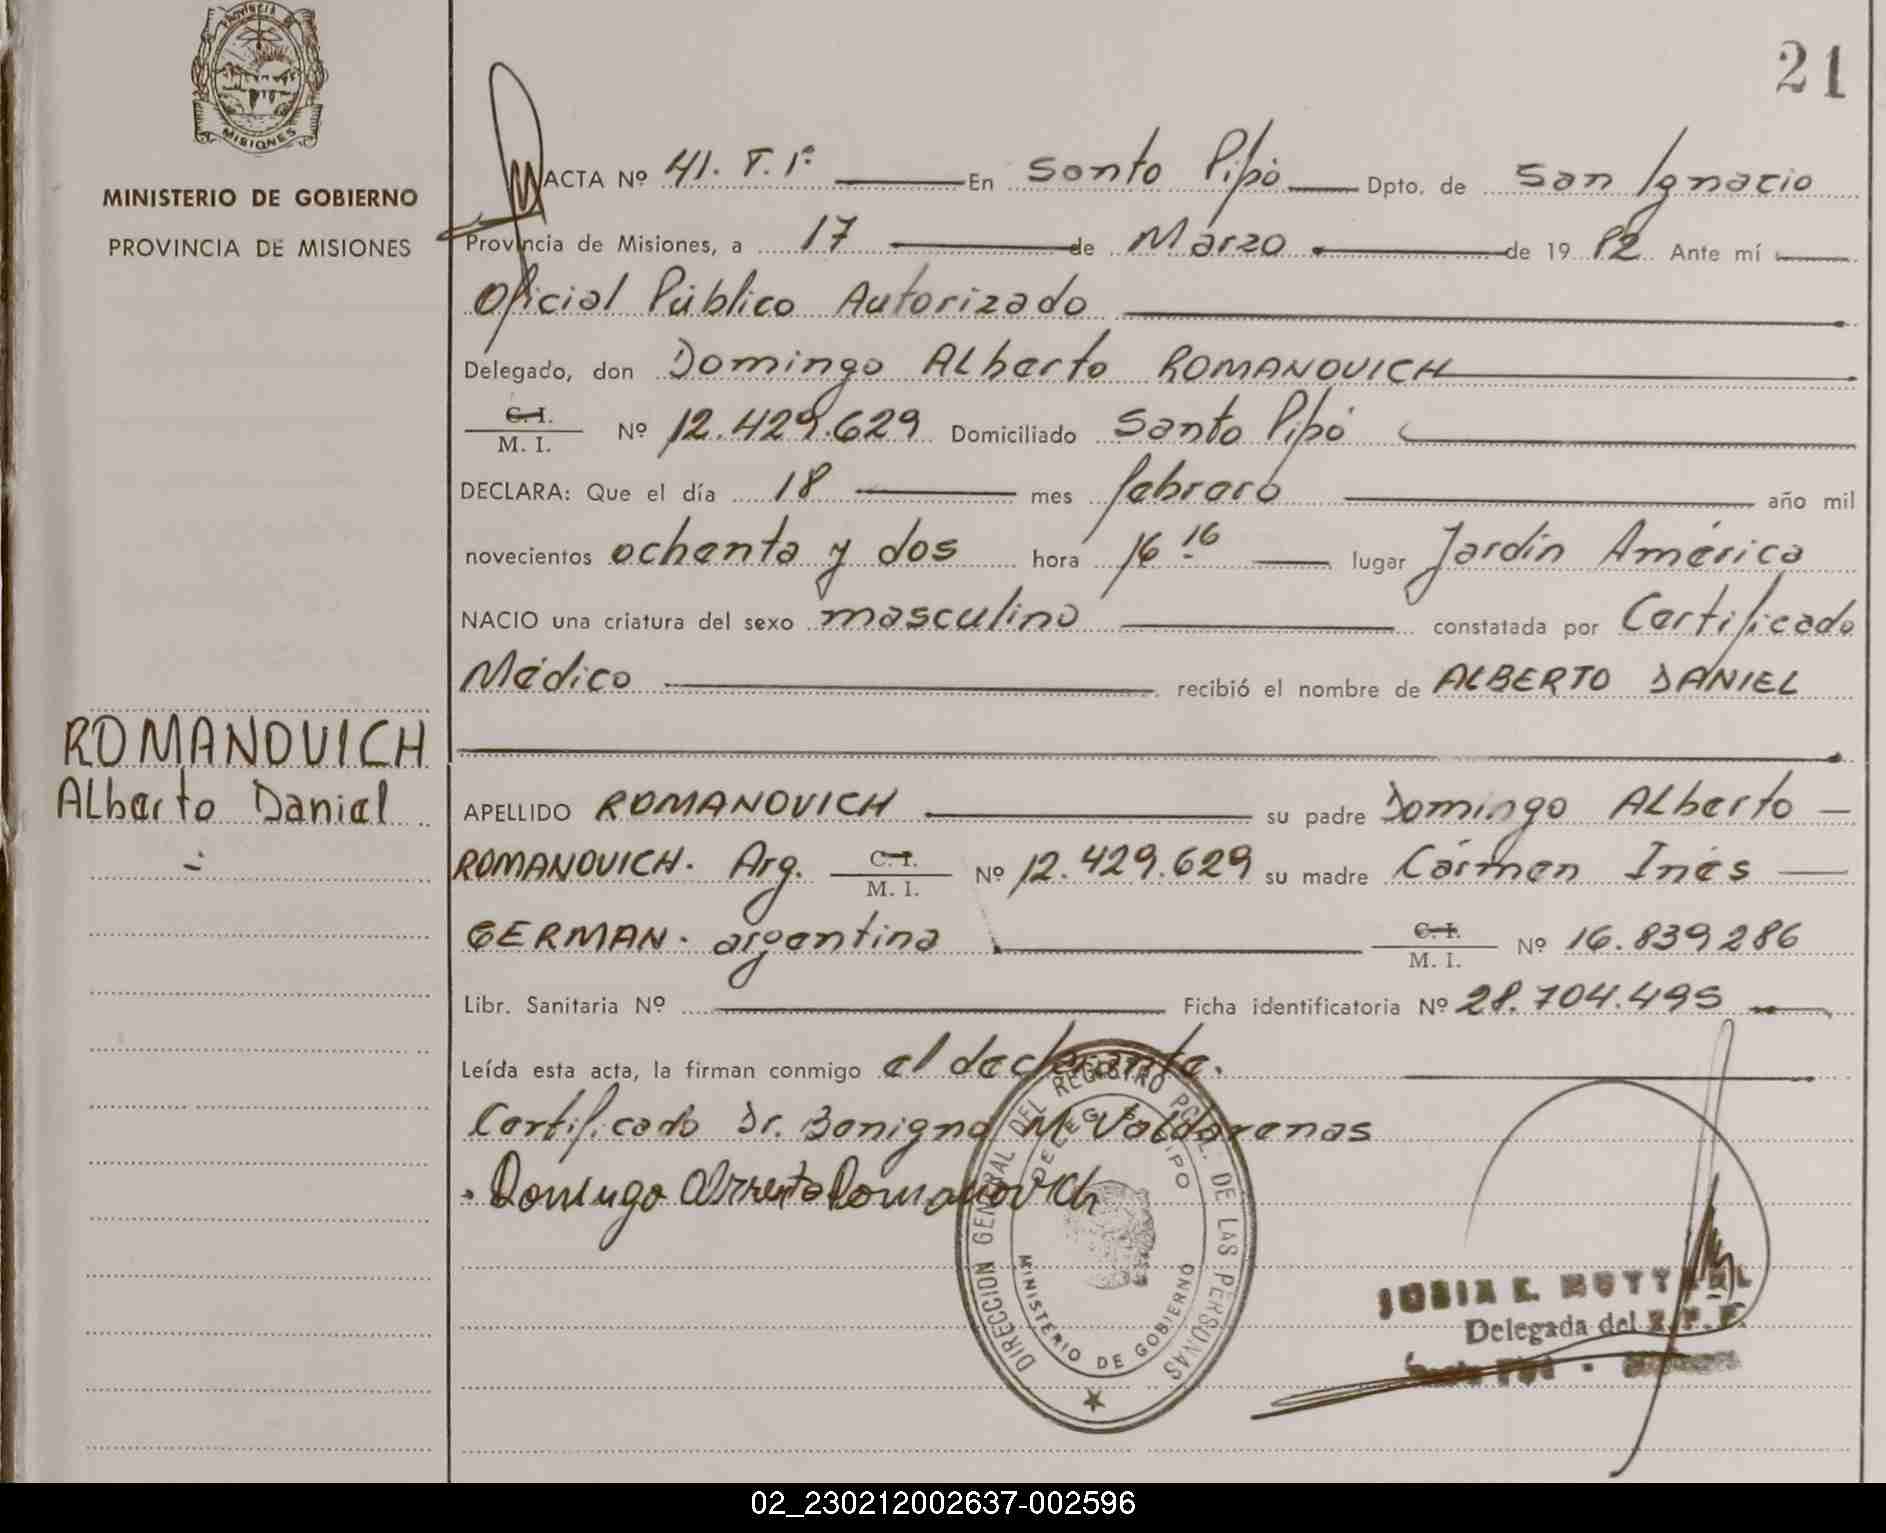 21
PROVINCIA DE
MISIONES
MINISTERIO DE GOBIERNO
PROVINCIA DE MISIONES
ROMANOVICH
Alberto Daniel
ACTA Nº 41. T. 1º En Santo Pipó Dpto. de San Ignacio
Provincia de Misiones, a 17 de Marzo de 19 82 Ante mí
Oficial Público Autorizado
Delegado, don Domingo Alberto ROMANOVICH
C. I.
M. I. Nº 12.429.629 Domiciliado Santo Pipó
DECLARA: Que el día 18 mes febrero año mil
novecientos ochenta y dos hora 16 16 lugar Jardín América
NACIO una criatura del sexo masculino constatada por Certificado
Médico recibió el nombre de ALBERTO DANIEL
APELLIDO ROMANOVICH su padre Domingo Alberto
ROMANOVICH. Arg. C. I. M. I. Nº 12.429.629 su madre Cármen Inés
GERMAN. argentina C. I. M. I. Nº 16.839286
Libr. Sanitaria Nº Ficha identificatoria Nº 28.704.495
Leída esta acta, la firman conmigo el declarante.
Certificado Dr. Benigno M. Valdarenas
Domingo Alberto Romanovich
DIRECCION GENERAL DEL REGISTRO DE LAS PERSONAS
MINISTERIO DE GOBIERNO
Delegada del
02_230212002637-002596